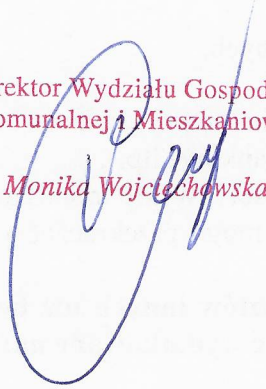 rektor Wydziału Gospod
omunalnej i Mieszkaniow
Monika Wojciechowska